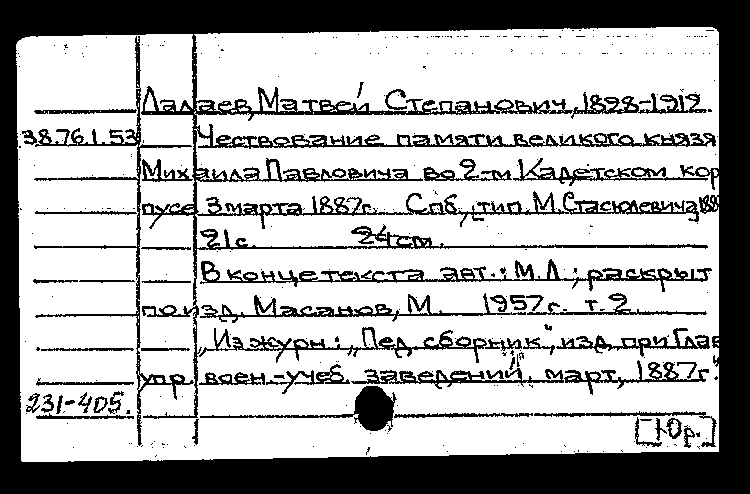 Лалаев, Матвей Степанович, 1828-1912
38.76.1.53 Чествование памяти великого князя
Михаила Павловича во 2-м Кадетском кор
пусе 3 марта 1887г. Спб, [тип. М. Стасюлевича] 188
21с. 24см.
В конце текста авт.: М.Л.; раскрыт
по изд. Масанов, М. 1957г. т.2.
„Из журн: „Пед. сборник", изд. при Глав
упр. воен.-учеб. заведений, март, 1887г."
231-405.
[Юр.]